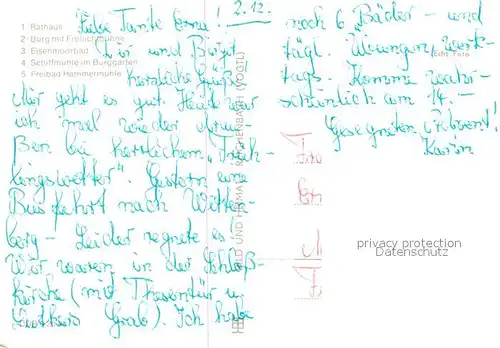 1 Rathaus
2 Burg mit Freilichtbühne
3 Eisenmoorbad
4 Schiffmühle im Burggarten
5 Freibad Hammermühle
Liebe Tante Erna! 2.12.
Dir und Birgit
herzliche Grüße
Mir geht es gut. Heute war
ich mal wieder drau-
ßen bei herrlichem „Früh-
lingswetter“. Gestern eine
Busfahrt nach Witten-
berg - Leider regnete es
Wir waren in der Schloß-
kirche (mit Thesentür u.
Luthers Grab). Ich habe
noch 6 Bäder - und
tägl. Übungen, werk-
tags. Komme wahr-
scheinlich am 14. -
Gesegneten Advent!
Karin
Echt Foto
BILD UND HEIMAT REICHENBACH (VOGTL)
privacy protection
Datenschutz